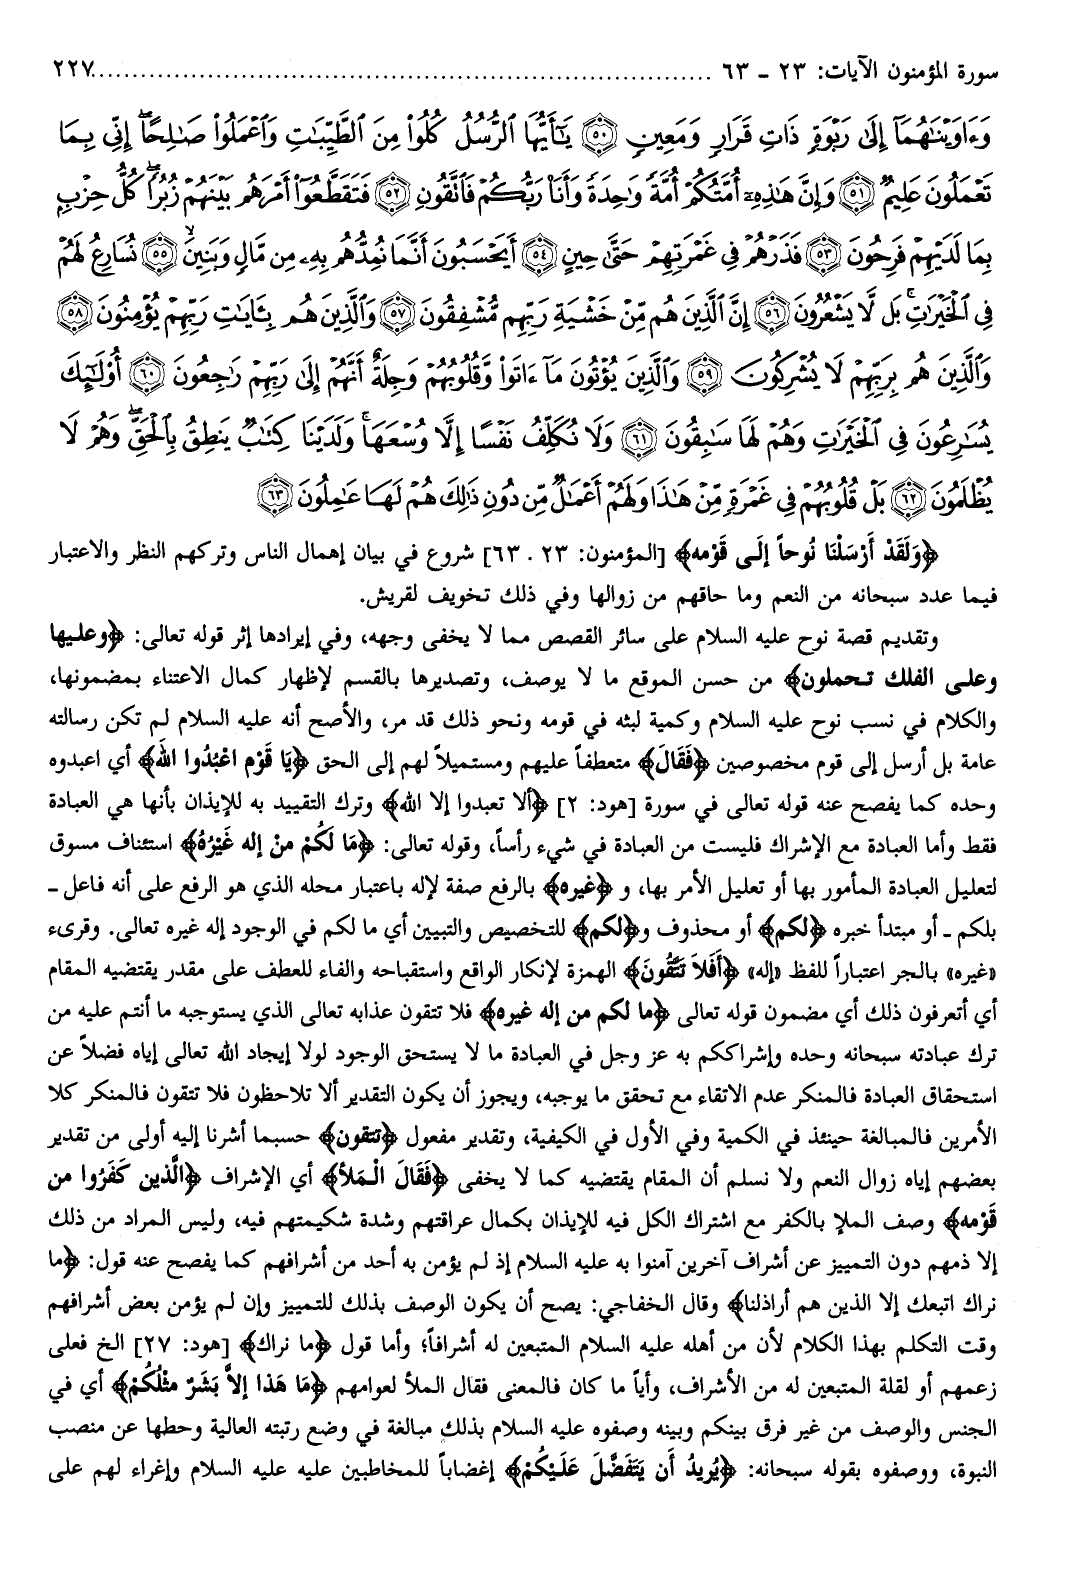 سورة المؤمنون الآيات: ٢٣ ـ ٦٣ ........................................................................ ٢٢٧
وَءَاوَيْنَٰهُمَآ إِلَىٰ رَبْوَةٍ ذَاتِ قَرَارٍ وَمَعِينٍ ﴿٥٠﴾ يَٰٓأَيُّهَا ٱلرُّسُلُ كُلُوا۟ مِنَ ٱلطَّيِّبَٰتِ وَٱعْمَلُوا۟ صَٰلِحًا ۖ إِنِّى بِمَا
تَعْمَلُونَ عَلِيمٌ ﴿٥١﴾ وَإِنَّ هَٰذِهِۦٓ أُمَّتُكُمْ أُمَّةً وَٰحِدَةً وَأَنَا۠ رَبُّكُمْ فَٱتَّقُونِ ﴿٥٢﴾ فَتَقَطَّعُوٓا۟ أَمْرَهُم بَيْنَهُمْ زُبُرًا ۖ كُلُّ حِزْبٍۭ
بِمَا لَدَيْهِمْ فَرِحُونَ ﴿٥٣﴾ فَذَرْهُمْ فِى غَمْرَتِهِمْ حَتَّىٰ حِينٍ ﴿٥٤﴾ أَيَحْسَبُونَ أَنَّمَا نُمِدُّهُم بِهِۦ مِن مَّالٍ وَبَنِينَ ۙ ﴿٥٥﴾ نُسَارِعُ لَهُمْ
فِى ٱلْخَيْرَٰتِ ۚ بَل لَّا يَشْعُرُونَ ﴿٥٦﴾ إِنَّ ٱلَّذِينَ هُم مِّنْ خَشْيَةِ رَبِّهِم مُّشْفِقُونَ ﴿٥٧﴾ وَٱلَّذِينَ هُم بِـَٔايَٰتِ رَبِّهِمْ يُؤْمِنُونَ ﴿٥٨﴾
وَٱلَّذِينَ هُم بِرَبِّهِمْ لَا يُشْرِكُونَ ﴿٥٩﴾ وَٱلَّذِينَ يُؤْتُونَ مَآ ءَاتَوا۟ وَّقُلُوبُهُمْ وَجِلَةٌ أَنَّهُمْ إِلَىٰ رَبِّهِمْ رَٰجِعُونَ ﴿٦٠﴾ أُو۟لَٰٓئِكَ
يُسَٰرِعُونَ فِى ٱلْخَيْرَٰتِ وَهُمْ لَهَا سَٰبِقُونَ ﴿٦١﴾ وَلَا نُكَلِّفُ نَفْسًا إِلَّا وُسْعَهَا ۚ وَلَدَيْنَا كِتَٰبٌ يَنطِقُ بِٱلْحَقِّ ۖ وَهُمْ لَا
يُظْلَمُونَ ﴿٦٢﴾ بَلْ قُلُوبُهُمْ فِى غَمْرَةٍ مِّنْ هَٰذَا وَلَهُمْ أَعْمَٰلٌ مِّن دُونِ ذَٰلِكَ هُمْ لَهَا عَٰمِلُونَ ﴿٦٣﴾
﴿وَلَقَدْ أَرْسَلْنَا نُوحاً إِلَى قَوْمه﴾ [المؤمنون: ٢٣ . ٦٣] شروع في بيان إهمال الناس وتركهم النظر والاعتبار
فيما عدد سبحانه من النعم وما حاقهم من زوالها وفي ذلك تخويف لقريش.
وتقديم قصة نوح عليه السلام على سائر القصص مما لا يخفى وجهه، وفي إيرادها إثر قوله تعالى: ﴿وعليها
وعلى الفلك تحملون﴾ من حسن الموقع ما لا يوصف، وتصديرها بالقسم لإظهار كمال الاعتناء بمضمونها،
والكلام في نسب نوح عليه السلام وكمية لبثه في قومه ونحو ذلك قد مر، والأصح أنه عليه السلام لم تكن رسالته
عامة بل أرسل إلى قوم مخصوصين ﴿فَقَالَ﴾ متعطفاً عليهم ومستميلاً لهم إلى الحق ﴿يَا قَوْم اعْبُدُوا اللهَ﴾ أي اعبدوه
وحده كما يفصح عنه قوله تعالى في سورة [هود: ٢] ﴿ألا تعبدوا إلا الله﴾ وترك التقييد به للإيذان بأنها هي العبادة
فقط وأما العبادة مع الإشراك فليست من العبادة في شيء رأساً، وقوله تعالى: ﴿مَا لَكُمْ منْ إله غَيْرُهُ﴾ استئناف مسوق
لتعليل العبادة المأمور بها أو تعليل الأمر بها، و ﴿غيره﴾ بالرفع صفة لإله باعتبار محله الذي هو الرفع على أنه فاعل ـ
بلكم ـ أو مبتدأ خبره ﴿لكم﴾ أو محذوف و﴿لكم﴾ للتخصيص والتبيين أي ما لكم في الوجود إله غيره تعالى. وقرىء
«غيره» بالجر اعتباراً للفظ «إله» ﴿أَفَلاَ تَتَّقُونَ﴾ الهمزة لإنكار الواقع واستقباحه والفاء للعطف على مقدر يقتضيه المقام
أي أتعرفون ذلك أي مضمون قوله تعالى ﴿ما لكم من إله غيره﴾ فلا تتقون عذابه تعالى الذي يستوجبه ما أنتم عليه من
ترك عبادته سبحانه وحده وإشراككم به عز وجل في العبادة ما لا يستحق الوجود لولا إيجاد الله تعالى إياه فضلاً عن
استحقاق العبادة فالمنكر عدم الاتقاء مع تحقق ما يوجبه، ويجوز أن يكون التقدير ألا تلاحظون فلا تتقون فالمنكر كلا
الأمرين فالمبالغة حينئذ في الكمية وفي الأول في الكيفية، وتقدير مفعول ﴿تتقون﴾ حسبما أشرنا إليه أولى من تقدير
بعضهم إياه زوال النعم ولا نسلم أن المقام يقتضيه كما لا يخفى ﴿فَقَالَ الْمَلأُ﴾ أي الإشراف ﴿الَّذين كَفَرُوا من
قَوْمه﴾ وصف الملإ بالكفر مع اشتراك الكل فيه للإيذان بكمال عراقتهم وشدة شكيمتهم فيه، وليس المراد من ذلك
إلا ذمهم دون التمييز عن أشراف آخرين آمنوا به عليه السلام إذ لم يؤمن به أحد من أشرافهم كما يفصح عنه قول: ﴿ما
نراك اتبعك إلا الذين هم أراذلنا﴾ وقال الخفاجي: يصح أن يكون الوصف بذلك للتمييز وإن لم يؤمن بعض أشرافهم
وقت التكلم بهذا الكلام لأن من أهله عليه السلام المتبعين له أشرافاً؛ وأما قول ﴿ما نراك﴾ [هود: ٢٧] الخ فعلى
زعمهم أو لقلة المتبعين له من الأشراف، وأياً ما كان فالمعنى فقال الملأ لعوامهم ﴿مَا هَذا إلاَّ بَشَرٌ مثْلُكُمْ﴾ أي في
الجنس والوصف من غير فرق بينكم وبينه وصفوه عليه السلام بذلك مبالغة في وضع رتبته العالية وحطها عن منصب
النبوة، ووصفوه بقوله سبحانه: ﴿يُريدُ أَن يَتَفَضَّلَ عَلَيْكُمْ﴾ إغضاباً للمخاطبين عليه عليه السلام وإغراء لهم على